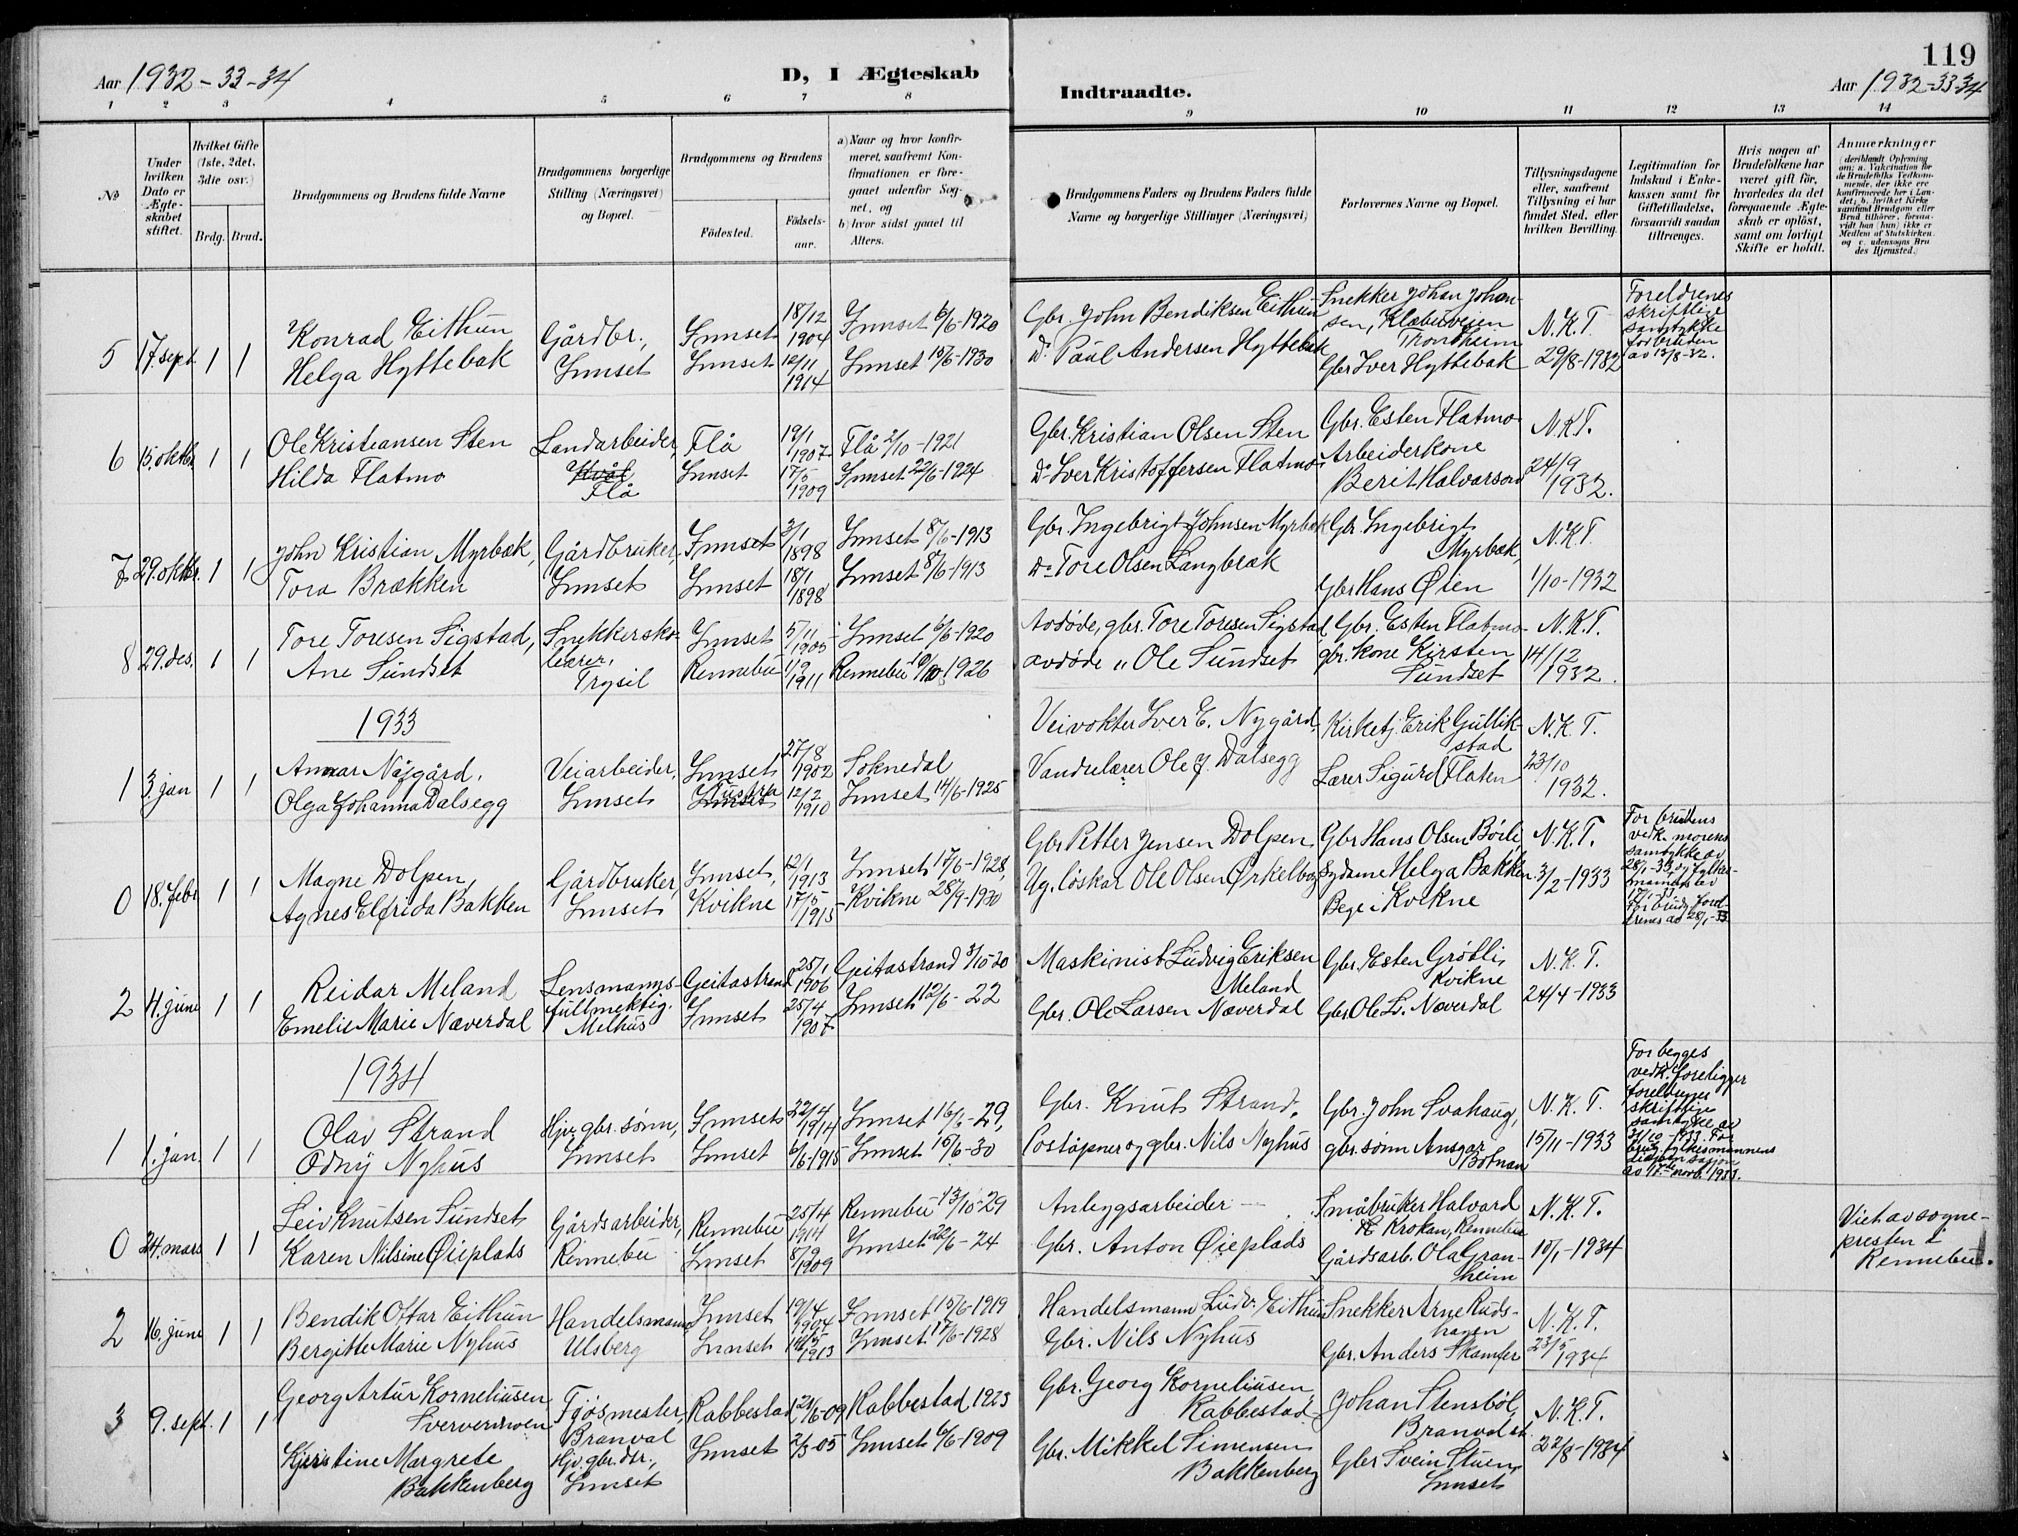 Aar 1932-33-34
D, I Ægteskab
Indtraadte.
119
Aar 1932-33-34
1 2 3 4 5 6 7 8 9 10 11 12 13 14
No
Under hvilken Dato er Ægteskabet stiftet.
Hvilket Gifte (1ste, 2det, 3die osv.)
Brdg. Brud.
Brudgommens og Brudens fulde Navne
Brudgommens borgerlige Stilling (Næringsvei) og Bopæl.
Brudgommens og Brudens
Fødested.
Fødselsaar.
a) Naar og hvor konfirmeret, saafremt Konfirmationen er foregaaet udenfor Sognet, og
b) hvor sidst gaaet til Alters.
Brudgommens Faders og Brudens Faders fulde Navne og borgerlige Stillinger (Næringsvei)
Forlovernes Navne og Bopæl.
Tillysningsdagene eller, saafremt Tillysning ei har fundet Sted, efter hvilken Bevilling.
Legitimation for Indskud i Enkekassen samt for Giftetilladelse, forsaavidt saadan tiltrænges.
Hvis nogen af Brudefolkene har været gift før, hvorledes da det foregaaende Ægteskab er opløst, samt om lovligt Skifte er holdt.
Anmærkninger
5 17. sept. 1 1 Konrad Eithun Gårdbr., Innset 18/12 1904 Innset 6/6-1920 Gbr. John Bendiksen Eithun Snekker Johan Johansen, Klæbuveien Trondheim N.K.T. Foreldrenes skriftlige samtykke for bruden av 13/8-32.
Helga Hyttebak Innset Innset 12/11 1914 Innset 15/6-1930 Do Paul Andersen Hyttebak Gbr Iver Hyttebak 29/8-1932
6 15. oktbr. 1 1 Ole Kristiansen Sten Landarbeider, Flå 19/1 1907 Flå 2/10-1921 Gbr. Kristian Olsen Sten Gbr. Esten Flatmo N.K.T.
Hilda Flatmo Hvål Flå Innset 17/5 1909 Innset 22/6-1924 Do Iver Kristoffersen Flatmo Arbeiderkone Berit Halvarson 24/9 1932.
7 29. oktbr. 1 1 John Kristian Myrbæk, Gårdbruker, Innset 3/1 1898 Innset 8/6-1913 Gbr. Ingebrigt Johnsen Myrbæk Gbr. Ingebrigt Myrbæk, N.K.T.
Tora Brækken Innset Innset 18/1 1898 Innset 8/6-1913 Do Tore Olsen Langbræk Gbr Hans Øien 1/10-1932
8 29. des. 1 1 Tore Toresen Sigstad, Snekkerskolærer, Innset 5/11 1905 Innset 6/6-1920 Avdøde, gbr. Tore Toresen Sigstad Gbr. Esten Flatmo N.K.T.
Ane Sundset Trysil Rennebu 1/9 1911 Rennebu 10/10 1926 avdøde " Ole Sundset gbr. kone Kirsten Sundset 14/12 1932.
1933
1 3. jan 1 1 Annar Nygård, Veiarbeider, Innset 27/8 1902 Soknedal Veivokter Iver E. Nygård Kirketj. Erik Gullikstad N.K.T.
Olga Johanna Dalsegg Innset Innset Tustna 12/2 1910 Innset 14/6-1925 Vandrelærer Ole J. Dalsegg Lærer Sigurd Flaten 23/10 1932.
0 18. febr. 1 1 Magne Dolpen, Gårdbruker, Innset, 12/1 1913 Innset 17/6-1928, Gbr. Petter Jensen Dolpen Gbr Hans Olsen Børli N.K.T.
Agnes Elfrida Bakken Innset Kvikne 17/5 1915 Kvikne 28/9-1930 Ug. løskar Ole Olsen Ørkelbog Sydame Helga Bakken Bege i Kvikne 3/2-1933
2 4. june 1 1 Reidar Meland Lensmannsfullmektig. Geitastrand 25/1 1906 Geitastrand 3/10-20 Maskinist Ludvig Eriksen Meland Gbr. Esten Grøtli, Kvikne N.K.T.
Emelie Marie Næverdal Melhus Innset 25/4 1907 Innset 12/6-22 Gbr. Ole Larsen Næverdal Gbr. Ole L. Næverdal 24/4-1933
1934
1 1. jan. 1 1 Olav Strand Hjv. gbr. sønn, Innset 22/4 1914 Innset 16/6-29, Gbr. Knut Strand, Gbr. John Svahaug, N.K.T.
Odny Nyhus Innset Innset 6/6-1915 Innset 15/6-30 Poståpner og gbr. Nils Nyhus gbr. sønn Ansgar Botnan 15/11-1933
0 24. mars 1 1 Leiv Knutsen Sundset Gårdsarbeider, Rennebu 25/4 1914 Rennebu 13/10-29 Anleggsarbeider — Småbruker Halvard Krokan, Rennebu N.K.T. Viet av sognepresten i Rennebu.
Karen Nilsine Øieplads Rennebu Innset 8/9 1909 Innset 22/6-24 Gbr. Anton Øieplads Gårdsarb. Ola Granheim 10/1-1934
2 16. june 1 1 Bendik Ottar Eithun Handelsmann Innset 19/4 1904 Innset 15/6-1919 Handelsmann Ludv. Eithun Snekker Arne Rudshagen N.K.T.
Bergitte Marie Nyhus Ulsberg Innset 1913 Innset 17/6-1928 Gbr. Nils Nyhus Gbr. Anders Skamfer 23/5 1934
3 9. sept. 1 1 Georg Artur Korneliusen Fjøsmester, Rabbestad 21/6-09 Rabbestad 1923 Gbr. Georg Korneliusen Rabbestad Johan Stensbøl, Branval st. N.K.T.
Branval
Kjerstine Margrete Bakkenberg Hjv. gbr. dtr., Innset Innset 2/3-05 Innset 6/6-1909 Gbr. Mikkel Simensen Bakkenberg Gbr Svein Stuen, Innset 22/8-1934